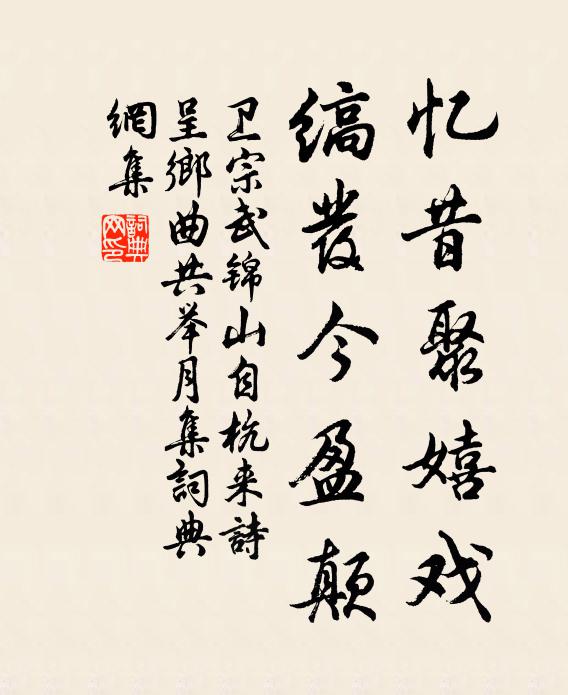 忆昔聚嬉戏
缟发今盈颠
卫宗武锦山自杭来詩
呈鄉曲共举月集詞典
網集
詞典
网印